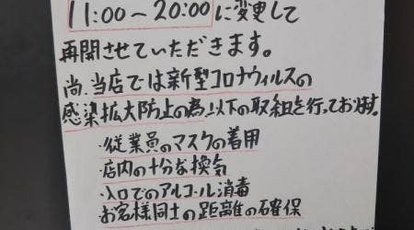 11:00～20:00に変更して
再開させていただきます。
尚、当店では新型コロナウィルスの
感染拡大防止の為、以下の取組を行っております。
・従業員のマスクの着用
・店内の十分な換気
・入口でのアルコール消毒
お客様同士の距離の確保